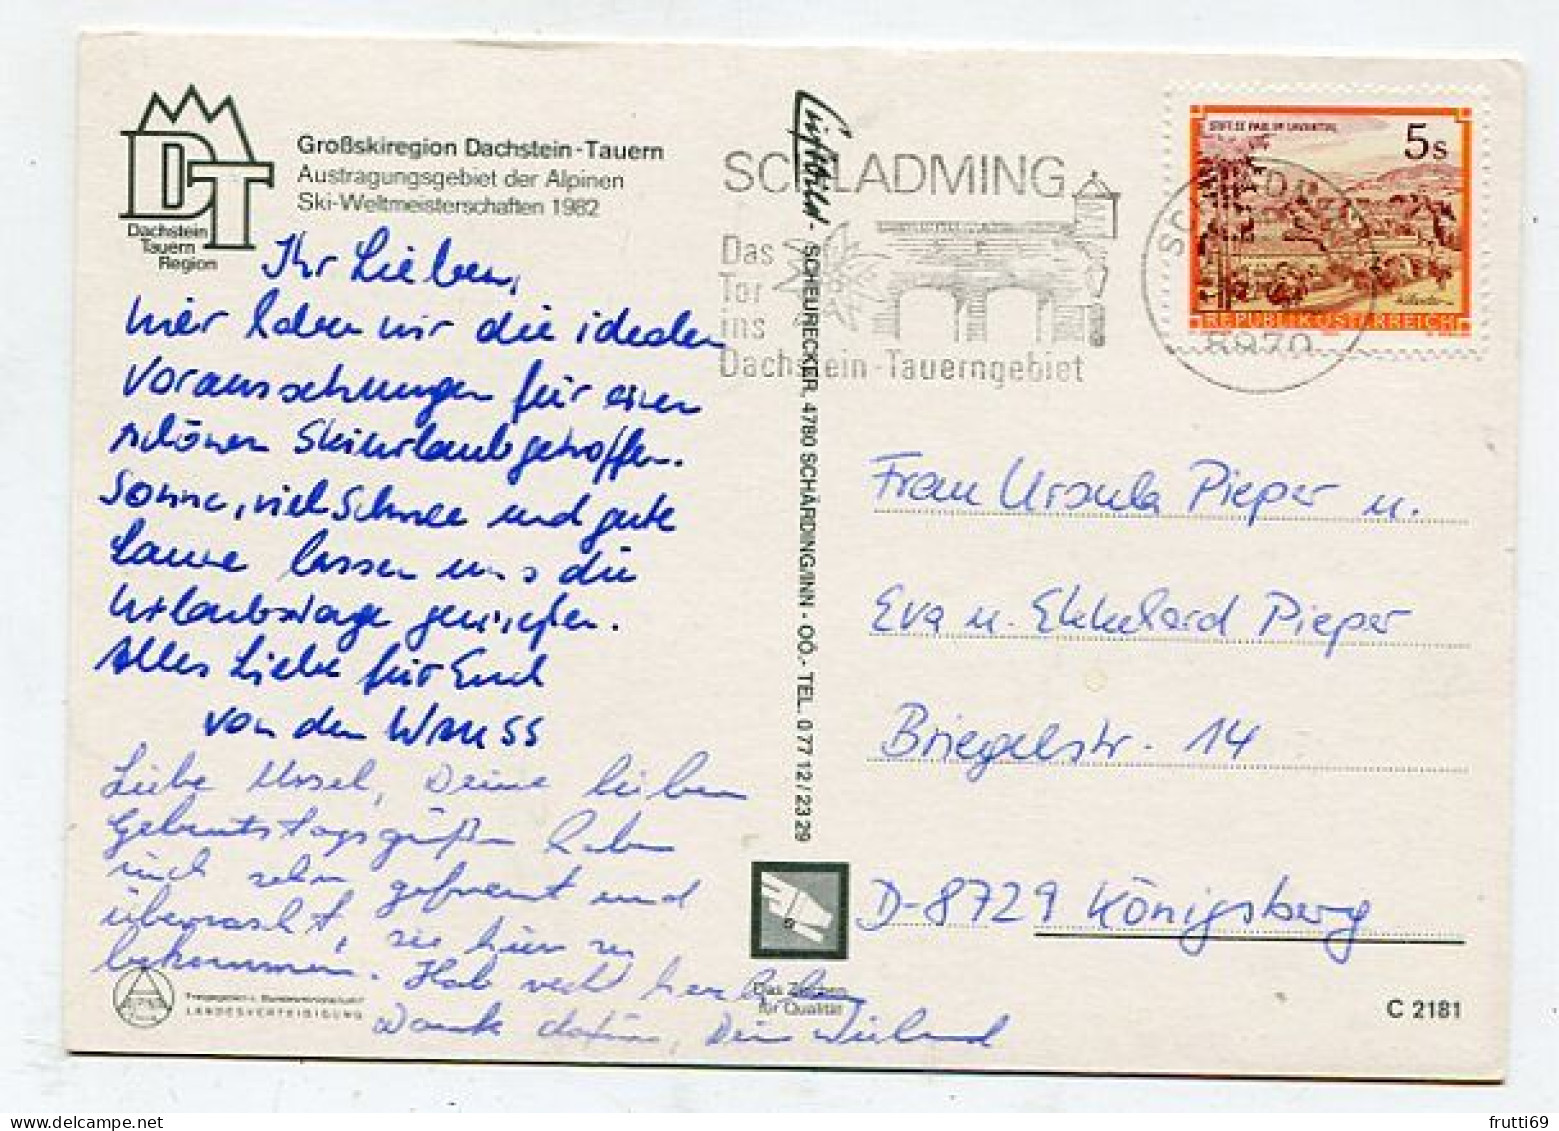 DT
Dachstein
Tauern
Region
Großskiregion Dachstein-Tauern
Austragungsgebiet der Alpinen
Ski-Weltmeisterschaften 1982
Ihr Lieben,
hier haben wir die idealen
Voraussetzungen für einen
schönen Skiurlaub getroffen.
Sonne, viel Schnee und gute
Laune lassen uns die
Urlaubstage genießen.
Alles Liebe für Euch
von den
Liebe Ursel, Deine lieben
Geburtstagsgrüße haben
mich sehr gefreut und
überrascht, sie hier zu
bekommen. Hab recht herzlichen
Dank dafür, Dein Wieland
LANDESVERTEIDIGUNG
Luftbild - SCHEURECKER, 4780 SCHÄRDING/INN - OÖ,- TEL. 0 77 12 / 23 29
Das Zeichen
für Qualität
SCHLADMING
Das
Tor
ins
Dachstein-Tauerngebiet
8970
STIFT ST. PAUL IM LAVANTTAL
5s
REPUBLIK ÖSTERREICH
Frau Ursula Pieper u.
Eva u. Ekkehard Pieper
Briegelstr. 14
D-8729 Königsberg
C 2181
frutti69